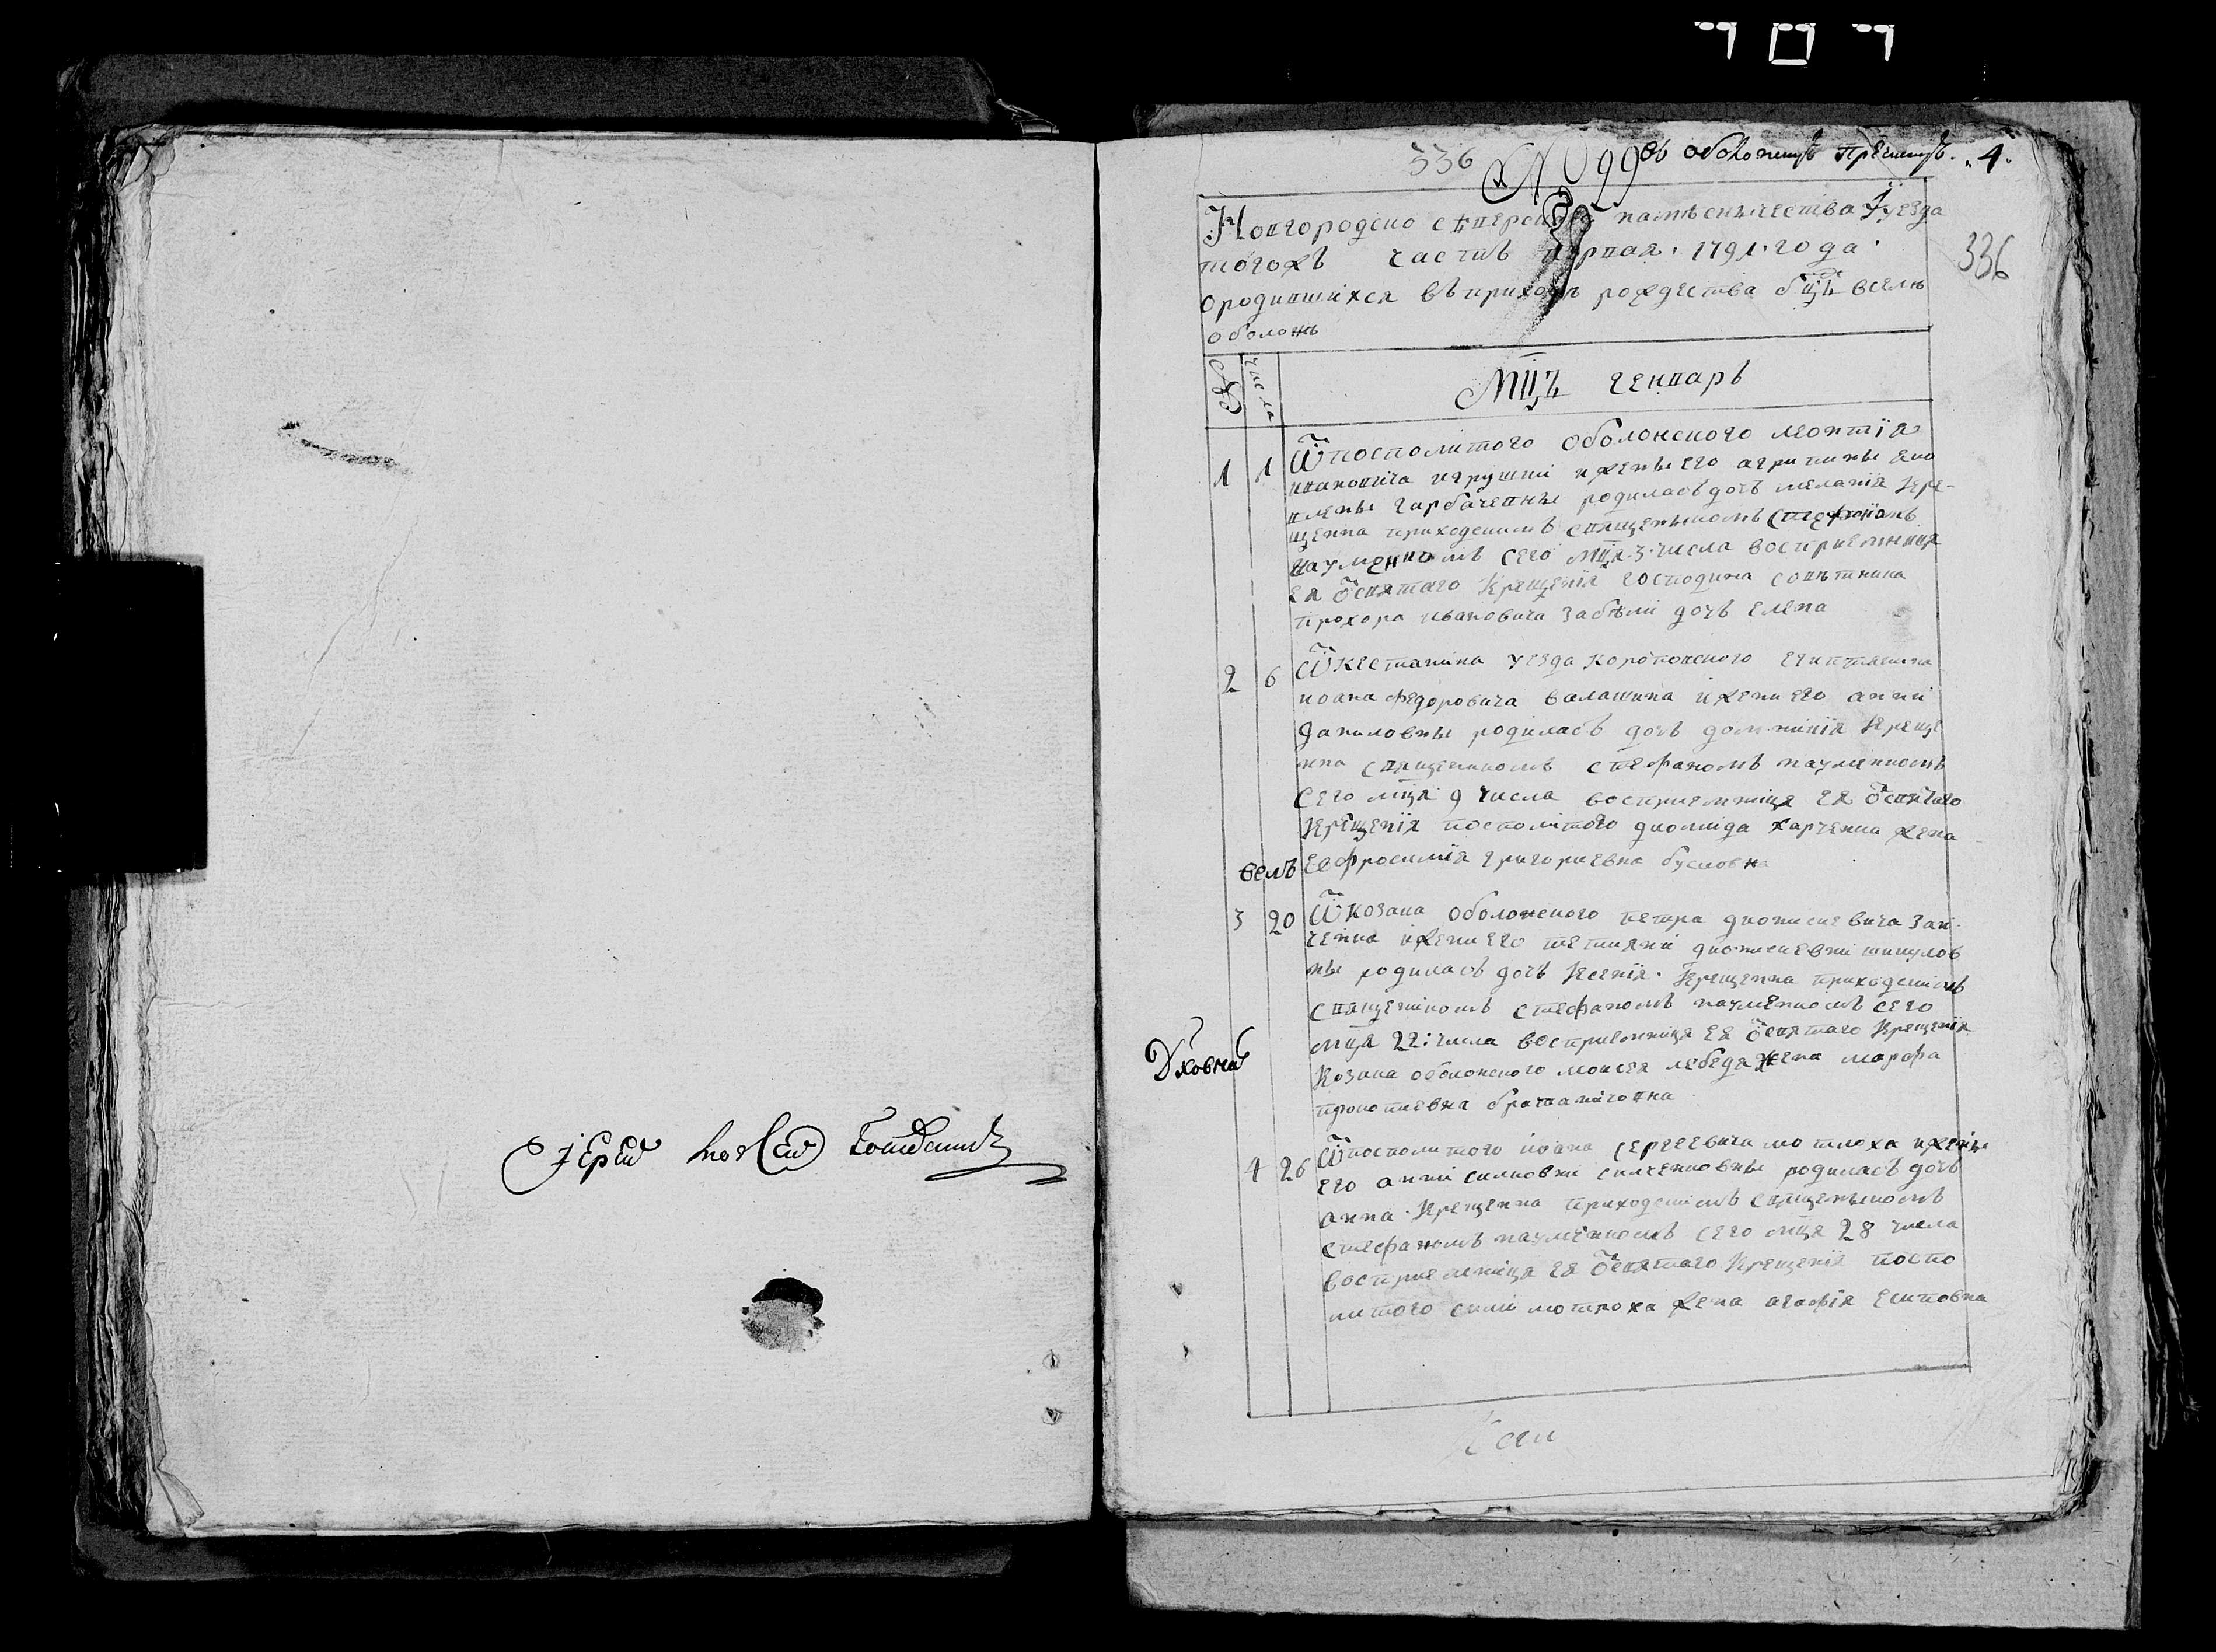 Їерей
336 № 99 въ оболонскъ "4"
Новгородско сѣверского намѣсничества і уезда
тогожъ часть первая · 1791 · года ·
336
ородившихся въ приходѣ рождества бцы вселѣ
оболонѣ
№ числа
мцъ генваръ
1 1 Ѿ посполитого оболонского леонтїя
ивановича игрушки ижены его агрипины яко
влевны гарбачевны родиласъ дочъ меланїя кре-
щенна приходскимъ священыкомъ стефаномъ
науменкомъ сего мца · 3 · числа восприемница
ея ѿ святаго крещенїя господина совѣтника
прохора ивановича забѣли дочъ елена
2 6 Ѿ кестянина уезда коропонского египтянина
иоана федоровича валашина ижени его анни
даниловны родиласъ дочъ домникїя креще
нна священикомъ стефаномъ науменкомъ
сего мця 9 числа восприемниця ея ѿ святаго
крещенїя посполитого диомида харченка жена
евфросинїя григориевна бусловна
3 20 Ѿ козака оболонского петра дионисиевича зай-
ченка ижени его тетияни дионисиевни шикулов
ны родиласъ дочъ ксенїя · крещенна приходскимъ
священикомъ стефаномъ науменкомъ сего
мця 22: числа восприемниця ея ѿ святаго крещенїя
Дховная
козака оболонского моисея лебедя жена марфа
прокопиевна
4 26 Ѿ посполитого иоана сергеевича мотроха ижены
его анни силковни силченковны родиласъ дочъ
анна · крещенна приходскимъ священыкомъ
стефаномъ науменкомъ сего мця 28 числа
восприемниця ея ѿ святаго крещенїя поспо
литого сили мотроха жена агафїя есиповна